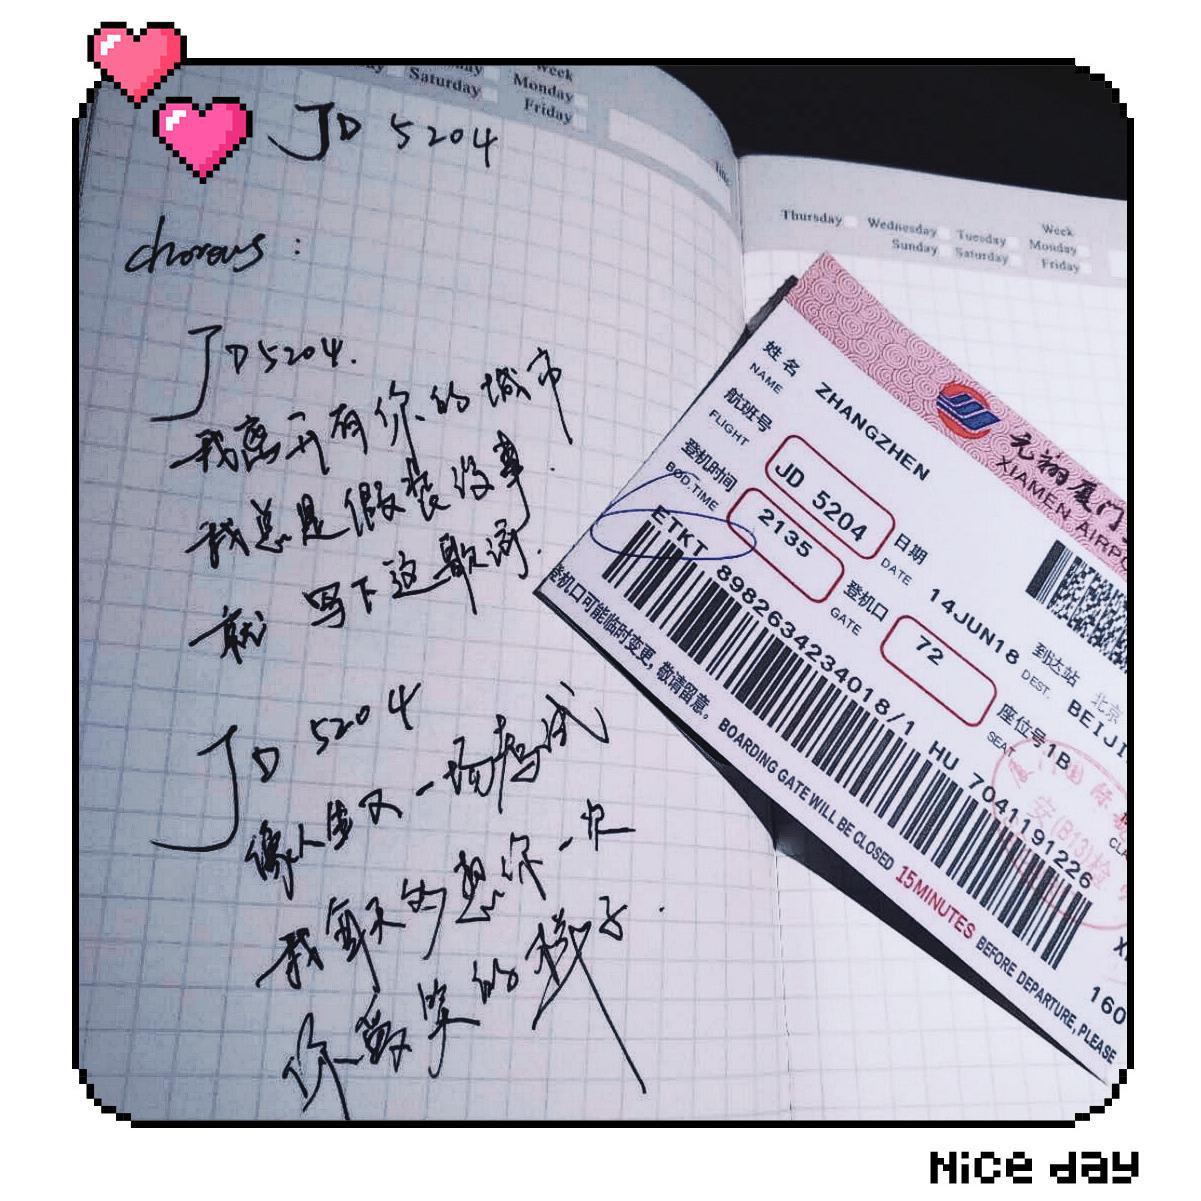 Saturday
Week
Monday
Friday
JD 5204
chorous :
JD5204.
我离开有你的城市
我总是假装没事.
就 写下这歌词.
JD 5204
像人生又一场考试
我每天的想你一次
你微笑的样子.
Thursday Wednesday Tuesday Week
Sunday Saturday Monday
Friday
元翔厦门
XIAMEN AIRPO
姓名
NAME
ZHANGZHEN
航班号
FLIGHT
JD 5204
日期
DATE
14JUN18
到达站
DEST.
北京
BEIJI
登机时间
BOD.TIME
2135
登机口
GATE
72
座位号
SEAT
1B
ETKT 8982634234018/1 HU 7041191226
登机口可能临时变更,敬请留意。 BOARDING GATE WILL BE CLOSED 15MINUTES BEFORE DEPARTURE, PLEASE
160
Nice day